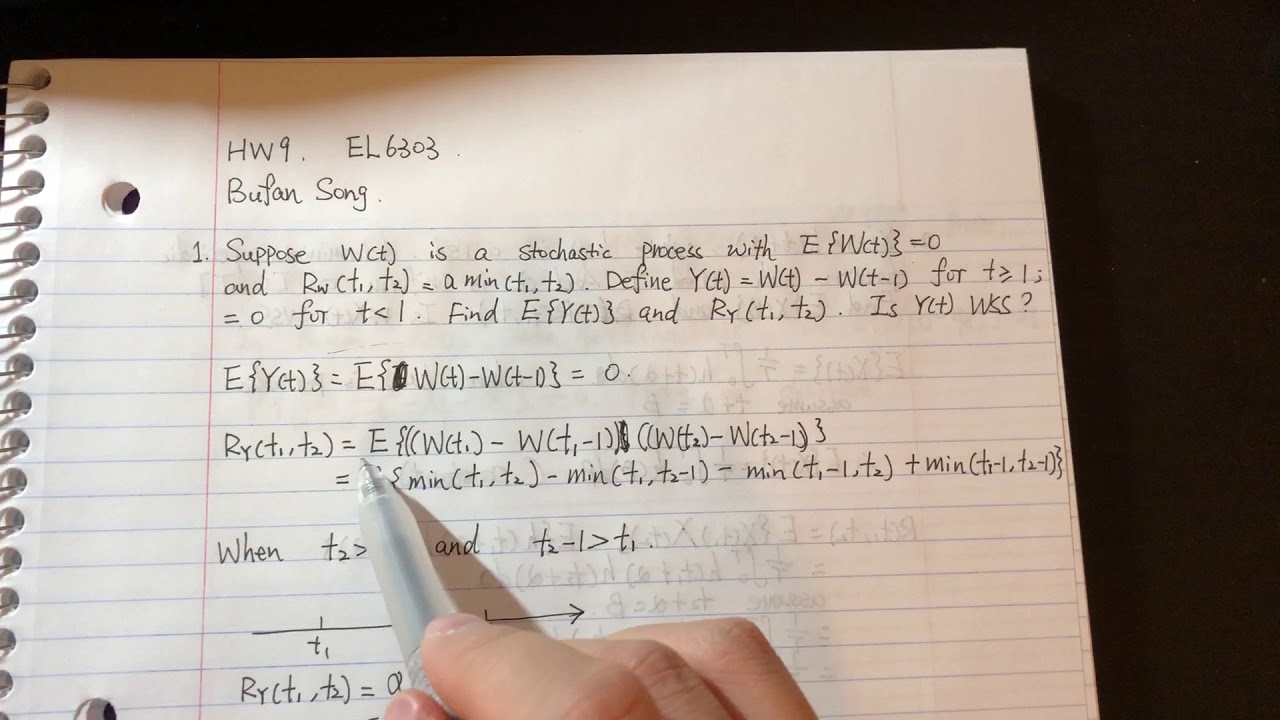 HW9. EL6303.
Bufan Song.
1. Suppose W(t) is a stochastic process with E{W(t)}=0
and Rw(t₁,t₂) = a min(t₁,t₂). Define Y(t) = W(t) - W(t-1) for t≥1;
= 0 for t<1. Find E{Y(t)} and RY(t₁,t₂). Is Y(t) WSS?
E{Y(t)} = E{W(t)-W(t-1)} = 0.
RY(t₁,t₂) = E{((W(t₁) - W(t₁-1)) ((W(t₂)-W(t₂-1)}
= {min(t₁,t₂) - min(t₁,t₂-1) - min(t₁-1,t₂) + min(t₁-1,t₂-1)}
When t₂> and t₂-1>t₁.
t₁
RY(t₁,t₂) = a